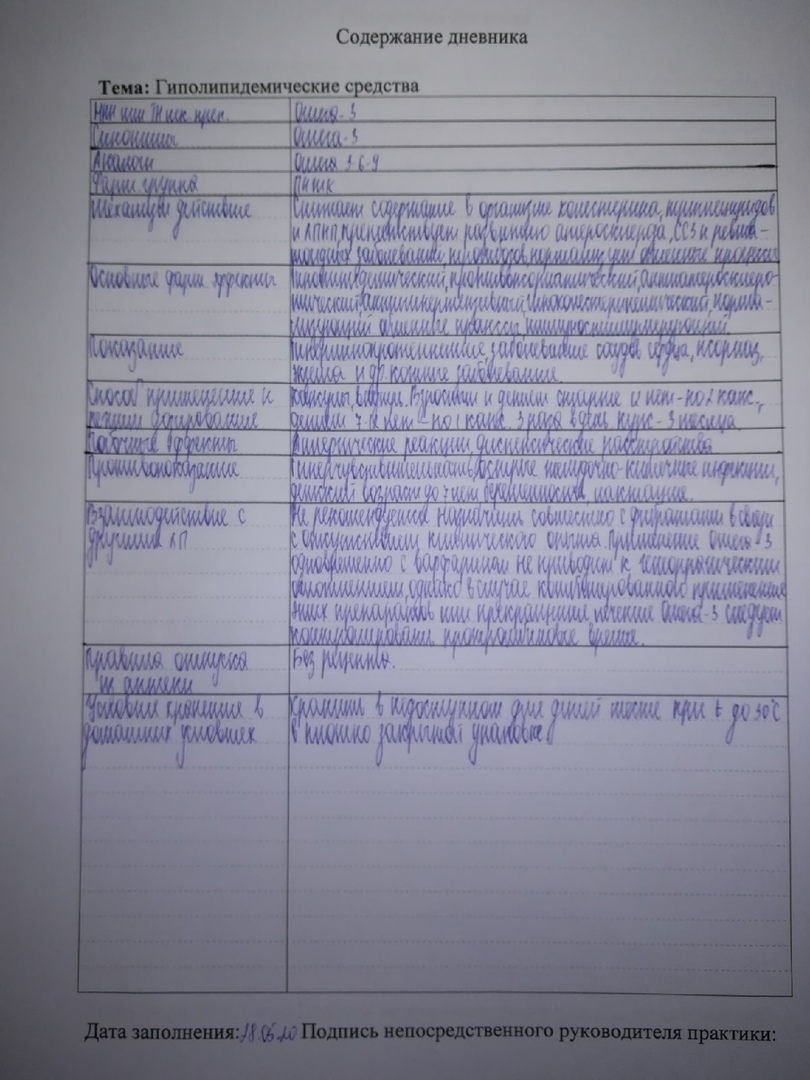 Содержание дневника
Тема: Гиполипидемические средства
МНН или ТН лек. преп. Омега-3
Синонимы Омега-3
Аналоги Омега 3-6-9
Фарм. группа ПНЖК
Механизм действия Снижает содержание в организме холестерина, триглицеридов
и ЛПНП, препятствует развитию атеросклероза, ССЗ и ревма-
тоидных заболеваний, нормализует обменные процессы
Основные фарм. эффекты
гипохолестеринемический, норма-
лизующий обменные процессы, иммуностимулирующий.
Показание заболевание сосудов сердца, псориаз,
экзема и др. кожные заболевания.
Способ применение и Капсулы, внутрь. Взрослым и детям старше лет - по 2 капс.,
режим дозирование детям 7-12 лет - по 1 капс. 3 раза в день курс - 3 месяца.
Побочные эффекты Аллергические реакции, диспепсические расстройства
Противопоказание Гиперчувствительность, острые желудочно-кишечные инфекции,
детский возраст до 7 лет, беременность, лактация.
Взаимодействие с Не рекомендуется назначать совместно с фибратами в связи
другими ЛП с отсутствием клинического опыта. Применение Омега-3
одновременно с варфарином не приводит к геморрагическим
осложнением, однако в случае комбинированного применение
этих препаратов или прекращение лечение Омега-3 следует
контролировать протромбиновое время.
Правила отпуска Без рецепта.
из аптеки
Условие хранение в Хранить в недоступном для детей месте при t до 30°C
домашних условиях в плотно закрытой упаковке
Дата заполнения: 18.05.20 Подпись непосредственного руководителя практики: